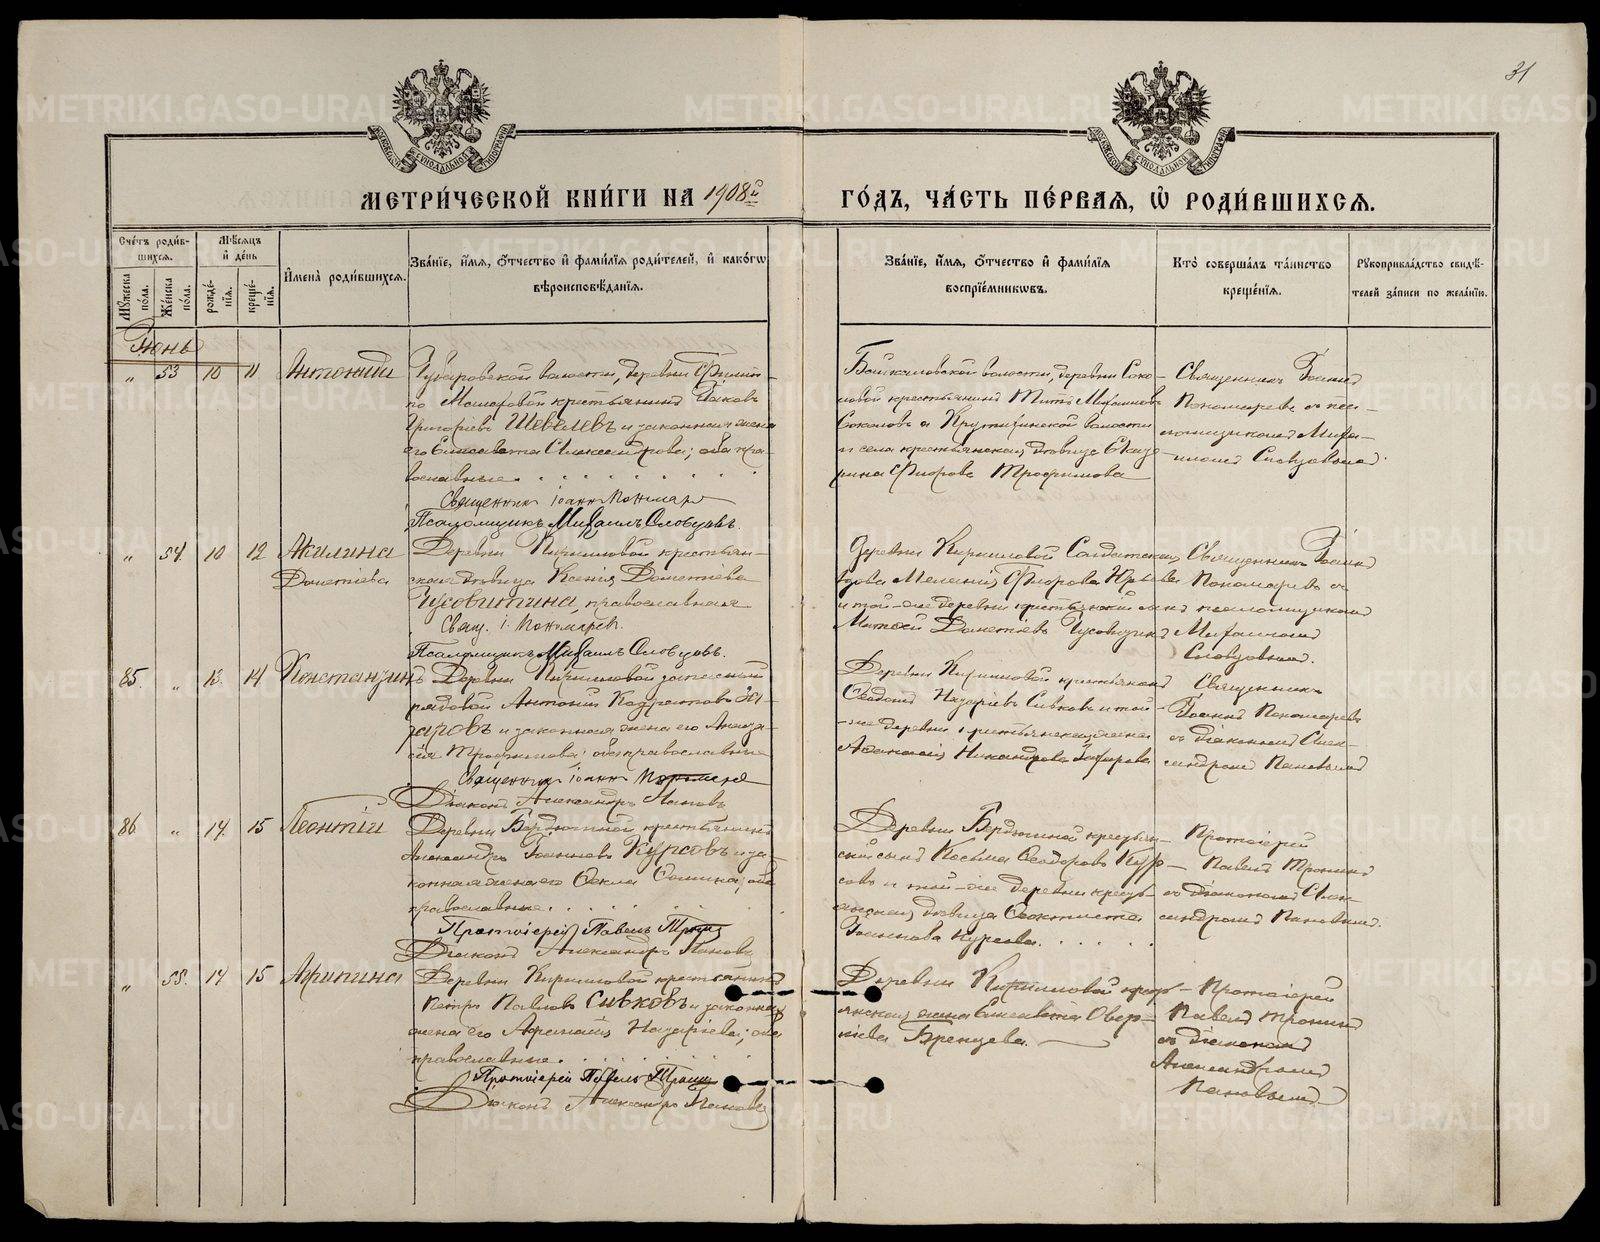 31
МЕТРИ́ЧЕСКОЙ КНИ́ГИ НА 1908й
ГО́ДЪ, ЧА́СТЬ ПЕ́РВАЯ, Ѽ РОДИ́ВШИХСѦ.
Сче́тъ роди́в-
шихся.
Мѣ́сяцъ
и҆ де́нь
Мꙋ́жеска по́ла.
Же́нска по́ла.
рожде́-нїя.
креще́-нїя.
И҆мена̀ роди́вшихся.
Зва́нїе, и҆́мя, ѻ҆́тчество и҆ фами́лїя роди́телей, и҆ како́гѡ
вѣроисповѣ́данїя.
Зва́нїе, и҆́мя, ѻ҆́тчество и҆ фами́лїя
воспрїе́мникѡвъ.
Кто̀ соверша́лъ та́инство
креще́нїя.
Рꙋкоприкла́дство свидѣ́-
телей за́писи по жела́нїю.
Іюнь
„ 53 10 11
волости, деревни Филип-
по крестьянинъ Іаковъ
Григорьевъ Шевелевъ и законная жена
его Елисавета Александрова; оба пра-
вославные.
Священникъ Іоаннъ Пономаревъ
Псаломщикъ Михаилъ Словцовъ.
Байкаловской волости, деревни Соко-
ловой крестьянинъ Титъ Михаиловъ
Соколовъ и Крутихинской волости
и села крестьянская девица Екате-
рина Флорова Трофимова
Священникъ Іоаннъ
Пономаревъ съ пса-
ломщикомъ Миха-
иломъ Словцовымъ.
„ 54 10 12 Акилина
Дометіева
Деревни Кирилловой крестьян-
ская дѣвица Ксенія Дометіева
Чусовитина, православная
Свящ. І. Пономаревъ.
Псаломщикъ Михаилъ Словцовъ.
Деревни Кирилловой Солдатская
вдова Меланія Флорова Юрьева
и той-же деревни крестьянскій сынъ
Дометіевъ Чусовитинъ
Священникъ Іоаннъ
Пономаревъ съ
псаломщикомъ
Михаиломъ
Словцовымъ.
85. „ 13. 14 Константинъ
Деревни Кирилловой запасный
рядовой Антоній Кодратовъ За-
харовъ и законная жена его Анаста-
сія Трофимова; оба православные
Священникъ Іоаннъ Пономаревъ
Діаконъ Александръ Пановъ
Деревни Кирилловой крестьянинъ
Назаріевъ Сивковъ и той-
же деревни крестьянская жена
Никандрова Захарова
Священникъ
Іоаннъ Пономаревъ
съ діакономъ Алек-
сандромъ Пановымъ
86 „ 14. 15 Леонтій
Деревни Бердюгиной крестьянинъ
Александръ Іоанновъ Курсовъ и за-
конная жена его Фекла Фомина; оба
православные.
Протоіерей Павелъ
Діаконъ Александръ Пановъ
Деревни Бердюгиной крестьян-
скій сынъ Косьма Ѳеодоровъ Кур-
совъ и той-же деревни кресть-
янская дѣвица Ѳеоктиста
Іоаннова Курсова.
Протоіерей
Павелъ
съ діакономъ Алек-
сандромъ Пановымъ.
„ 55. 14 15 Агрипина
Деревни Кирилловой крестьянинъ
Петръ Павловъ Сивковъ и законная
жена его Назаріева; оба
православные.
Протоіерей Павелъ
Діаконъ Александръ Пановъ
Деревни Кирилловой крест-
янская жена Елисавета Овер-
кіева Бренцева.
Протоіерей
Павелъ
съ діакономъ
Александромъ
Пановымъ
METRIKI.GASO-URAL.RU